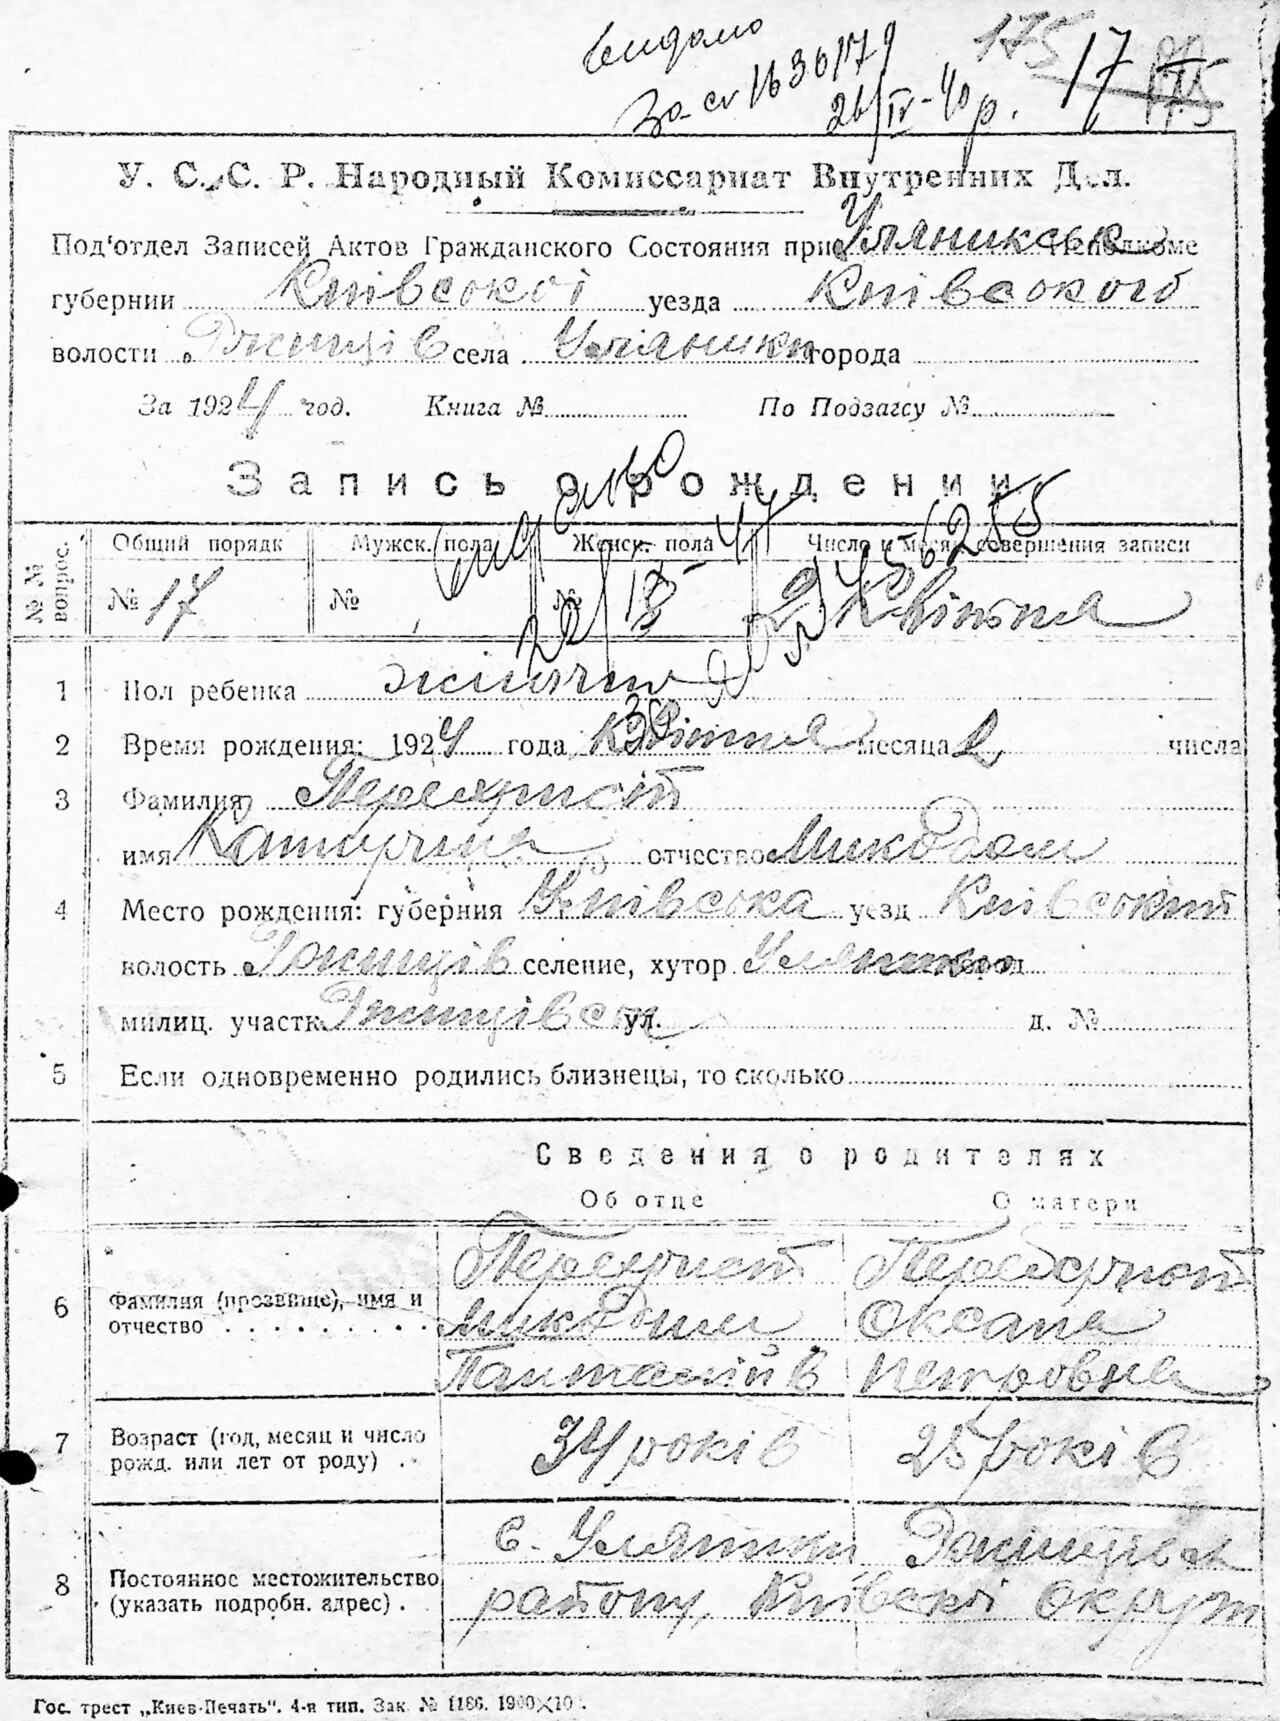 видано
За № 1636179
26/IV-40 р.
175 17
У. С. С. Р. Народный Комиссариат Внутренних Дел.
Под'отдел Записей Актов Гражданского Состояния при Уляникськ Исполкоме
губернии Київської уезда Київського
волости Ржищів села Уляники города
За 1924 год. Книга № По Подзагсу №
Запись о рождении
видано
№№ вопрос. Общий порядк Мужск. пола Женск. пола Число и месяц совершения записи
№ 17 № № 2 Квітня
1 Пол ребенка жіночго
2 Время рождения: 1924 года Квітня месяца 2 числа
3 Фамилия Перехрист
имя Катерина отчество Микодом
4 Место рождения: губерния Київська уезд Київський
волость Ржищів селение, хутор Уляники город
милиц. участк. Ржищівськ ул. д. №
5 Если одновременно родились близнецы, то сколько
Сведения о родителях
Об отце О матери
Перехрист Перехрист
6 Фамилия (прозвище), имя и отчество Микодим Оксана
Петровна
7 Возраст (год, месяц и число рожд. или лет от роду) 34 років 25 років
с. Уляники Ржищівськ
8 Постоянное местожительство (указать подробн. адрес) району, Київської Округи
Гос. трест „Киев-Печать". 4-я тип. Зак. № 1186.